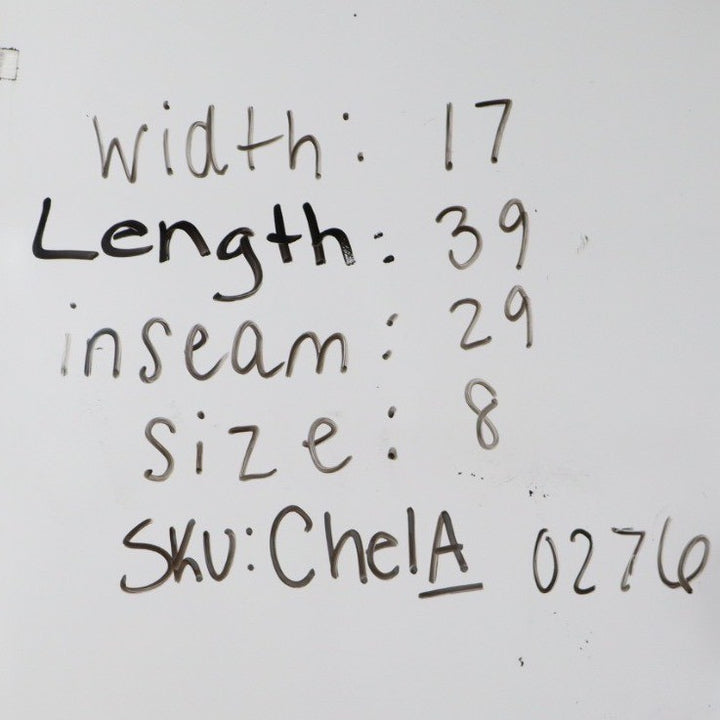 width: 17
Length: 39
inseam: 29
size: 8
SKU: ChelA 0276